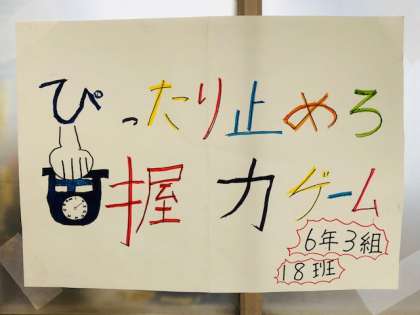 ぴったり止めろ
握力ゲーム
6年3組
18班